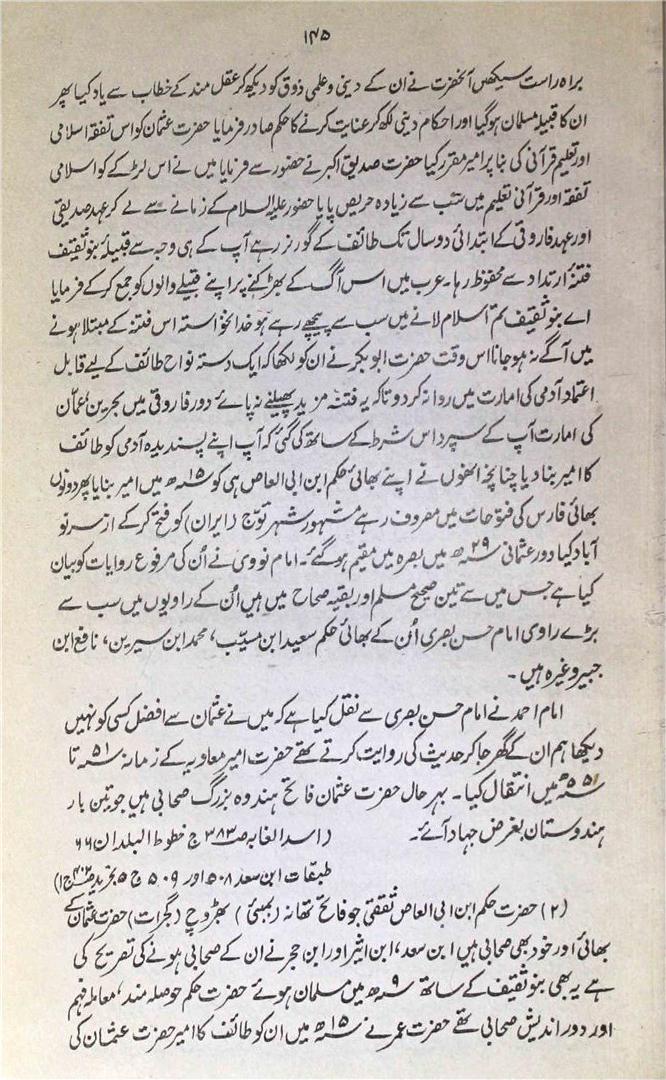 ۱۴۵
براہ راست سیکھیں آنحضرت نے ان کے دینی و علمی ذوق کو دیکھ کر عقل مند کے خطاب سے یاد کیا پھر
ان کا قبیلہ مسلمان ہوگیا اور احکام دینی لکھ کر عنایت کرنے کا حکم صادر فرمایا حضرت عثمان کو اس تفقہ اسلامی
اور تعلیم قرآنی کی بنا پر امیر مقرر کیا حضرت صدیق اکبر نے حضور سے فرمایا میں نے اس لڑکے کو اسلامی
تفقہ اور قرآنی تعلیم میں سب سے زیادہ حریص پایا حضور علیہ السلام کے زمانے سے لے کر عہد صدیقی
اور عہد فاروقی کے ابتدائی دو سال تک طائف کے گورنر رہے آپ کے ہی وجہ سے قبیلۂ بنو ثقیف
فتنۂ ارتداد سے محفوظ رہا۔ عرب میں اس آگ کے بھڑکنے پر اپنے قبیلے والوں کو جمع کر کے فرمایا
اے بنو ثقیف تم اسلام لانے میں سب سے پیچھے رہے ہو خدانخواستہ اس فتنہ کے مبتلا ہونے
میں آگے نہ ہو جانا اس وقت حضرت ابو بکر نے ان کو لکھا کہ ایک دستہ نواح طائف کے لیے قابل
اعتماد آدمی کی امارت میں روانہ کر دو تاکہ یہ فتنہ مزید پھیلنے نہ پائے دور فاروقی میں بحرین عمان
کی امارت آپ کے سپرد اس شرط کے ساتھ کی گئی کہ آپ اپنے پسندیدہ آدمی کو طائف
کا امیر بنا دیا چنانچہ انھوں نے اپنے بھائی حکم ابن ابی العاص ہی کو ۱۵ ھ میں امیر بنایا پھر دونوں
بھائی فارس کی فتوحات میں مصروف رہے مشہور شہر توّج (ایران) کو فتح کر کے از سر نو
آباد کیا دور عثمانی ۲۹ ھ میں بصرہ میں مقیم ہوگئے۔ امام نووی نے اُن کی مرفوع روایات کو بیان
کیا ہے جس میں سے تین صحیح مسلم اور بقیہ صحاح میں ہیں اُن کے راویوں میں سب سے
بڑے راوی امام حسن بصری اُن کے بھائی حکم سعید ابن مسیّب، محمد ابن سیرین، نافع ابن
جبیر وغیرہ ہیں۔
امام احمد نے امام حسن بصری سے نقل کیا ہے کہ میں نے عثمان سے افضل کسی کو نہیں
دیکھا ہم ان کے گھر جا کر حدیث کی روایت کرتے تھے حضرت امیر معاویہ کے زمانہ ۵۱ تا
۵۵ میں انتقال کیا۔ بہر حال حضرت عثمان فاتح ہند وہ بزرگ صحابی ہیں جو تین بار
ہندوستان بغرض جہاد آئے۔ (اسد الغابہ ص ۳۸۳ ج خطوط البلدان ۶۶
طبقات ابن سعد ۵۰۸ اور ۵۰۹ ج ۵ تجرید ج ۱)
(۲) حضرت حکم ابن ابی العاص ثقفی جو فاتح تھانہ (بمبئی) بھڑوچ (گجرات) حضرت عثمان کے
بھائی اور خود بھی صحابی ہیں ابن سعد، ابن اثیر اور ابن حجر نے ان کے صحابی ہونے کی تصریح کی
ہے یہ بھی بنو ثقیف کے ساتھ ۹ ھ میں مسلمان ہوئے حضرت حکم حوصلہ مند، معاملہ فہم
اور دور اندیش صحابی تھے حضرت عمر نے ۱۵ ھ میں ان کو طائف کا امیر حضرت عثمان کی